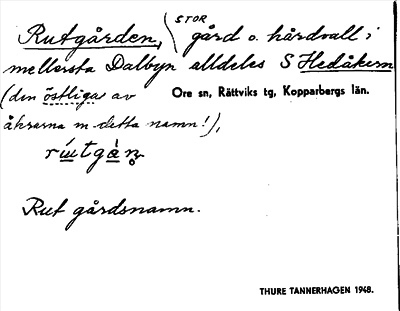 Rutgården, (STOR gård o. hårdvall i
mellersta Dalbyn alldeles S Hedåkern
(den östliga av
Ore sn, Rättviks tg, Kopparbergs län.
åkrarna m detta namn!),
rutgån
Rut gårdsnamn.
THURE TANNERHAGEN 1948.